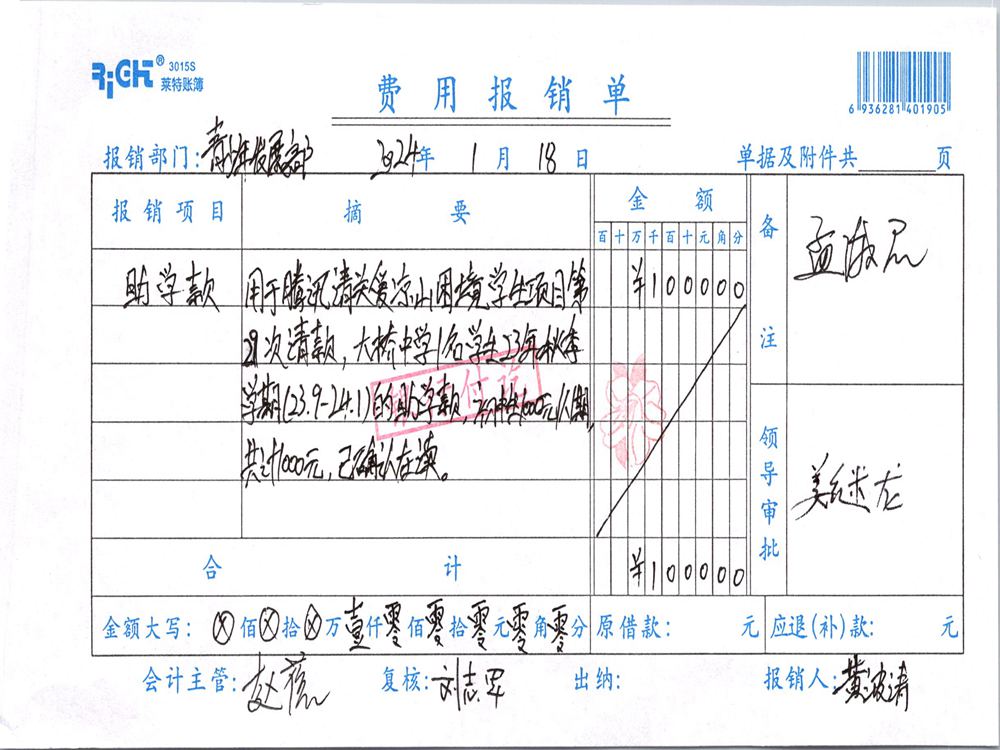 RiGHT® 3015S
莱特账簿
费用报销单
6 936281 401905
报销部门: 青少年发展部 2024年 1月 18日 单据及附件共 页
报销项目 摘要 金额 备注
百十万千百十元角分
助学款 用于腾讯清关爱凉山困境学生项目第 ¥100000
次请款,大桥中学1名学生23年秋季
学期(23.9-24.1)的助学款,1000元/人/期,
共计1000元,已确认在读。
领导审批
合计 ¥100000
金额大写: ⊗佰⊗拾⊗万壹仟零佰零拾零元零角零分 原借款: 元 应退(补)款: 元
会计主管: 赵 复核: 刘志军 出纳: 报销人: 黄波涛